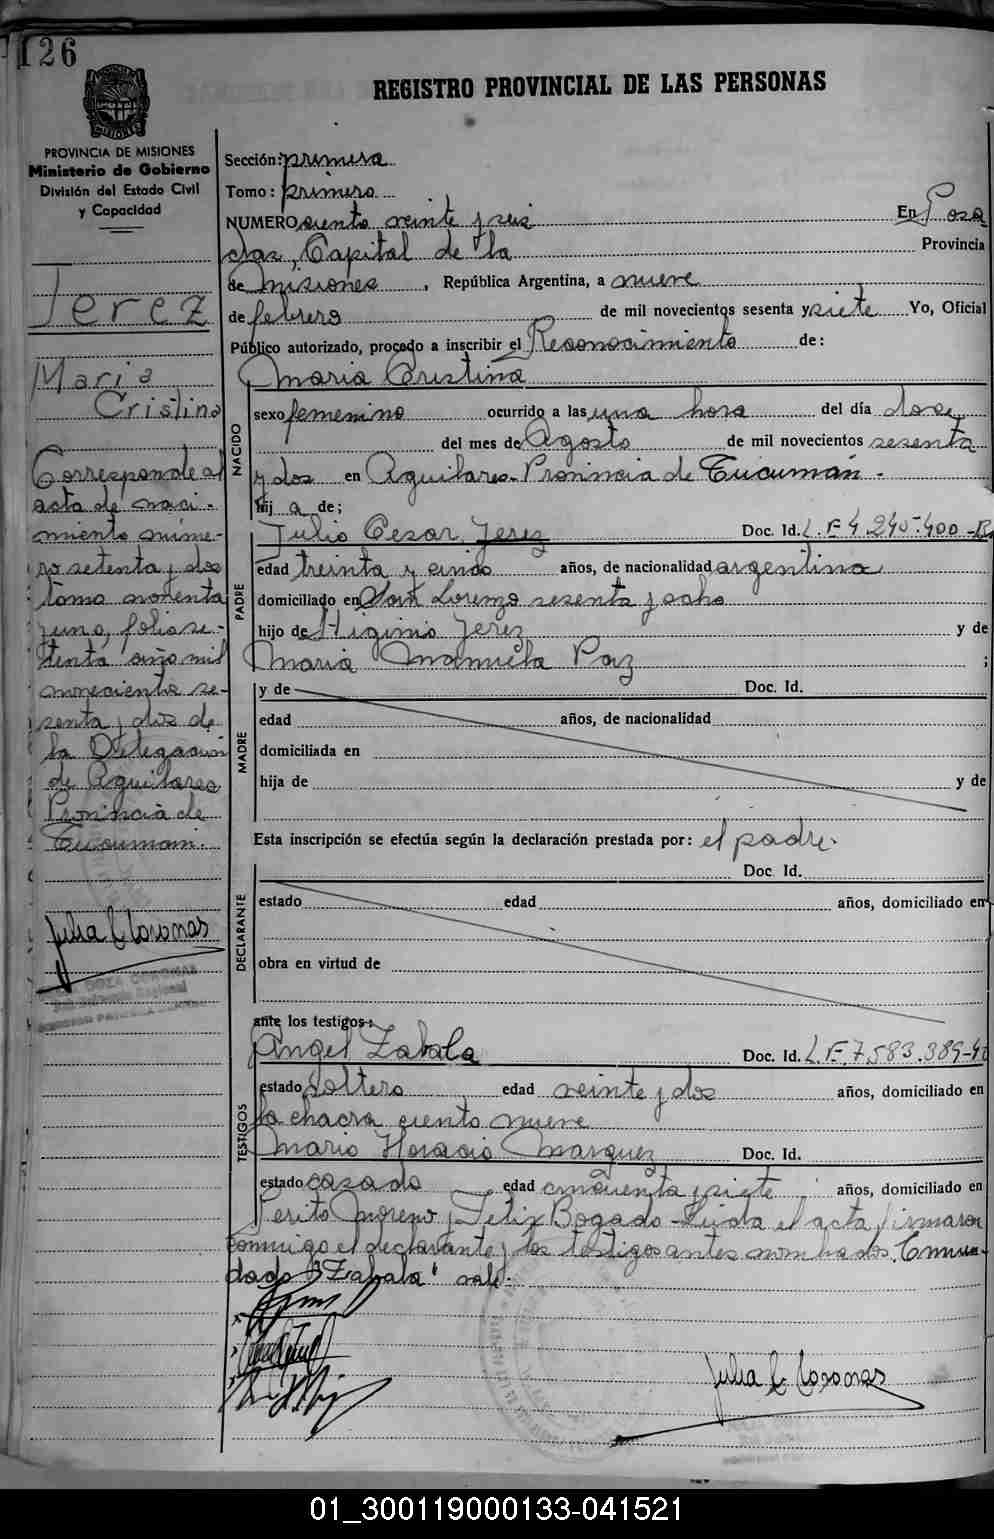 126
REGISTRO PROVINCIAL DE LAS PERSONAS
PROVINCIA DE MISIONES
Ministerio de Gobierno
División del Estado Civil
y Capacidad
Jerez
Maria
Cristina
Corresponde al
acta de naci-
miento núme-
ro setenta y dos
tomo noventa
y uno, folio se-
tenta año mil
novecientos se-
senta y dos de
la Delegación
de Aguilares
Provincia de
Tucumán.
Julia C Coronas
Sección: primera
Tomo: primero
NUMERO ciento veinte y seis En Posa
das, Capital de la Provincia
de Misiones, República Argentina, a nueve
de febrero de mil novecientos sesenta y siete Yo, Oficial
Público autorizado, procedo a inscribir el Reconocimiento de:
Maria Cristina
NACIDO
sexo femenino ocurrido a las una hora del día doce
del mes de Agosto de mil novecientos sesenta
y dos en Aguilares - Provincia de Tucumán.
hij a de;
PADRE
Julio Cesar Jerez Doc. Id. L.E 4.240.400
edad treinta y cinco años, de nacionalidad argentina
domiciliado en San Lorenzo sesenta y ocho
hijo de Higinio Jerez y de
Maria Manuela Paz ;
MADRE
y de Doc. Id.
edad años, de nacionalidad
domiciliada en
hija de y de
Esta inscripción se efectúa según la declaración prestada por: el padre.
DECLARANTE
Doc. Id.
estado edad años, domiciliado en
obra en virtud de
ante los testigos:
TESTIGOS
Angel Zabala Doc. Id. L.E. 7.583.389
estado soltero edad veinte y dos años, domiciliado en
la chacra ciento nueve
Mario Horacio Marquez Doc. Id.
estado casado edad cincuenta y siete años, domiciliado en
Perito Moreno y Felix Bogado - Leida el acta firmaron
conmigo el declarante y los testigos antes nombrados. Enmen-
dado "Zabala" vale.
Julia C Coronas
01_300119000133-041521